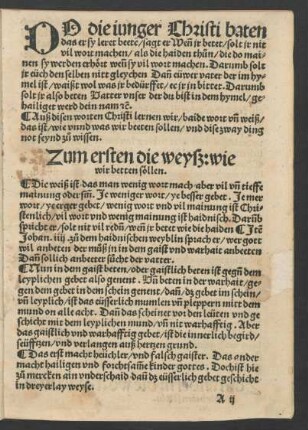 DO die iunger Christi baten
das er sy leret bette/ saget er Weñ jr bettet/ solt jr nit
vil wort machen/ als die haiden thůn/ die do mai-
nen sy werden erhört weñ sy vil wort machen. Darumb solt
jr eüch den selben nitt gleychen Dañ eüwer vater der im hy-
mel ist/ waißt wol was jr bedürfft/ ee jr in bittet. Darumb
solt jr also betten Vatter vnser der du bist in dem hymel/ ge-
hailiget werd dein nam ꝛc̃.
Auß disen worten Christi lernen wir/ baide wort vñ weiß/
das ist/ wie vnnd was wir betten sollen/ vnd dise zway ding
not seynd zů wissen.
Zum ersten die weyß: wie
wir betten söllen.
Die weiß ist das man wenig wort mach aber vil vñ tieffe
mainung oder sin̄. Je weniger wort/ ye besser gebet. Je mer
wort/ ye erger gebet/ wenig wort vnd vil mainung ist Chri-
stenlich/ vil wort vnd wenig mainung ist haidnisch. Darũb
spricht er/ sole nit vil redñ/ weñ jr bettet wie die haiden Jtẽ
Johan. iiij. zů dem haidnischen weyblin sprach er/ wer gott
wil anbetten der můß jn in dem gaist vnd warhait anbeetten
Dañ söllich anbetter sůcht der vatter.
Nun in dem gaist beten/ oder gaistlich beten ist gegn dem
leyplichen gebet also genent. Vñ beten in der warhait/ ge-
gen dem gebet in dem schein genent/ dañ/ dz gebet im schein/
vñ leyplich/ ist das eüsserlich mumlen vñ pleppern mitt dem
mund on alle acht. Dañ das scheinet vor den leüten vnd ge
schicht mit dem leyplichen mund/ vñ nit warhafftig. Aber
das gaistlich vnd warhafftig gebet/ ist die innerlich begird/
seüfftzen/ vnd verlangen auß hertzen grund.
Das erst macht heüchler/ vnd falsch gaister. Das ander
macht hailigen vnd forchtsame kinder gottes. Doch ist hie
zů mercken ain vnderschaid dañ dz eüsserlich gebet geschicht
in dreyerlay weyse.
A ij